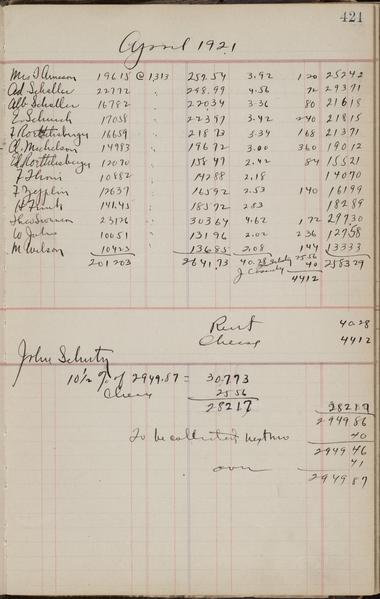 421
April 1921
Mrs J Arneson 19615 @ 1313 257.54 3.92 1 20 25242
Ad Schaller 22772 " 298.99 4.56 72 29371
Alb Schaller 16782 " 22034 3.36 80 21618
E. Schuck 17058 " 22397 3.42 240 21815
J Rotthisberger 16659 " 21873 3.34 168 21371
A. Michelson 14983 " 19672 3.00 360 19012
Ed Rotthisberger 12070 " 15847 2.42 84 15521
F Thoni 10882 " 14288 2.18 14070
F Zepplin 12637 " 16592 2.53 140 16199
H Funk 14145 " 18572 2.83 18289
Theo Swenson 23126 " 30364 4.62 1 72 29730
W John 10051 " 13196 2.02 2 36 12758
M Wilson 10423 13685 2.08 144 13333
201203 2641.73 40.28 25.56 258329
J 40
4412
Rent 40.28
Cheese 4412
John Schutz
10½ % of 2949.87 = 30773
Cheese 25 56
28217 28217
2949 86
To be collected next mo 40
2949 46
over 41
2949 87